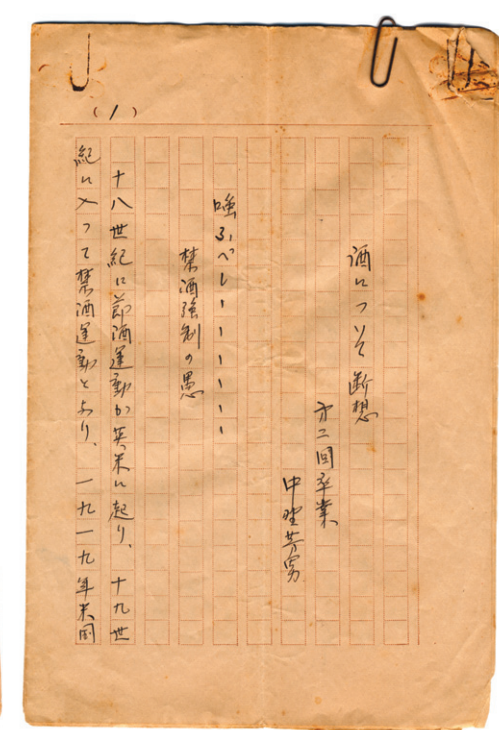 (1)
酒について断想
才二回卒業
中埜芳男
嗤ふべし――――――
禁酒強制の愚
十八世紀に節酒運動が英米に起り、十九世
紀に入って禁酒運動となり、一九一九年米国